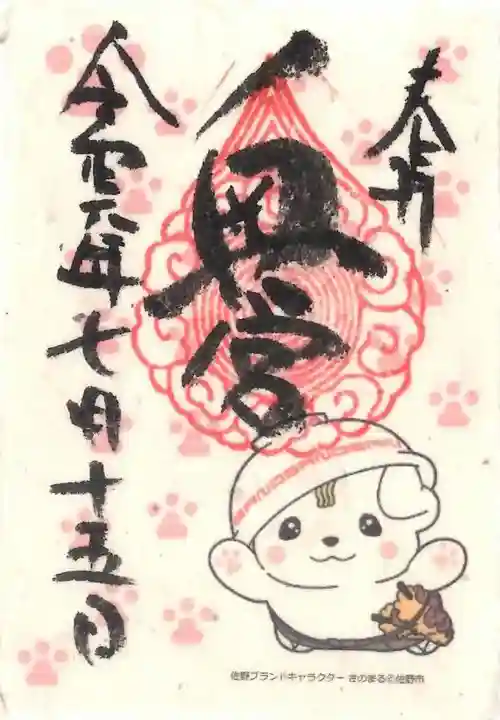 奉拝
奥宮
令和六年七月十五日
佐野ブランドキャラクター さのまる©佐野市